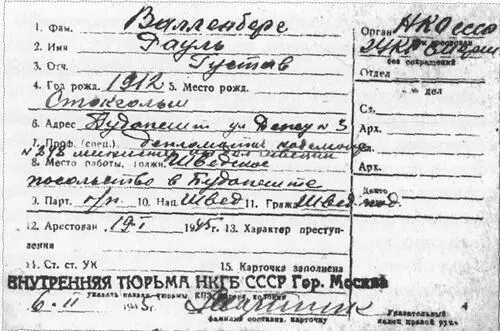 1. Фам. Валленберг
2. Имя Рауль
3. Отч. Густав
4. Год рожд. 1912 5. Место рожд.
Стокгольм
6. Адрес Будапешт ул
7. Проф. (спец.) дипломат
8. Место работы, должн. Шведское
посольство в Будапеште
9. Парт. б/п. 10. Нац. Швед 11. Гражд. Швед.
12. Арестован 19-I 1945г. 13. Характер преступ-
ления
14. Ст. ст. УК 15. Карточка заполнена
ВНУТРЕННЯЯ ТЮРЬМА НКГБ СССР Гор. Москва
указать назван. тюрьмы, КПЗ, колонии
6-II 1945г.
фамилия составив. карточку
Орган НКО СССР
без сокращений
Отдел
дел
Ст.
Арх.
Ст.
Арх.
Дакто
Указательный
палец правой руки